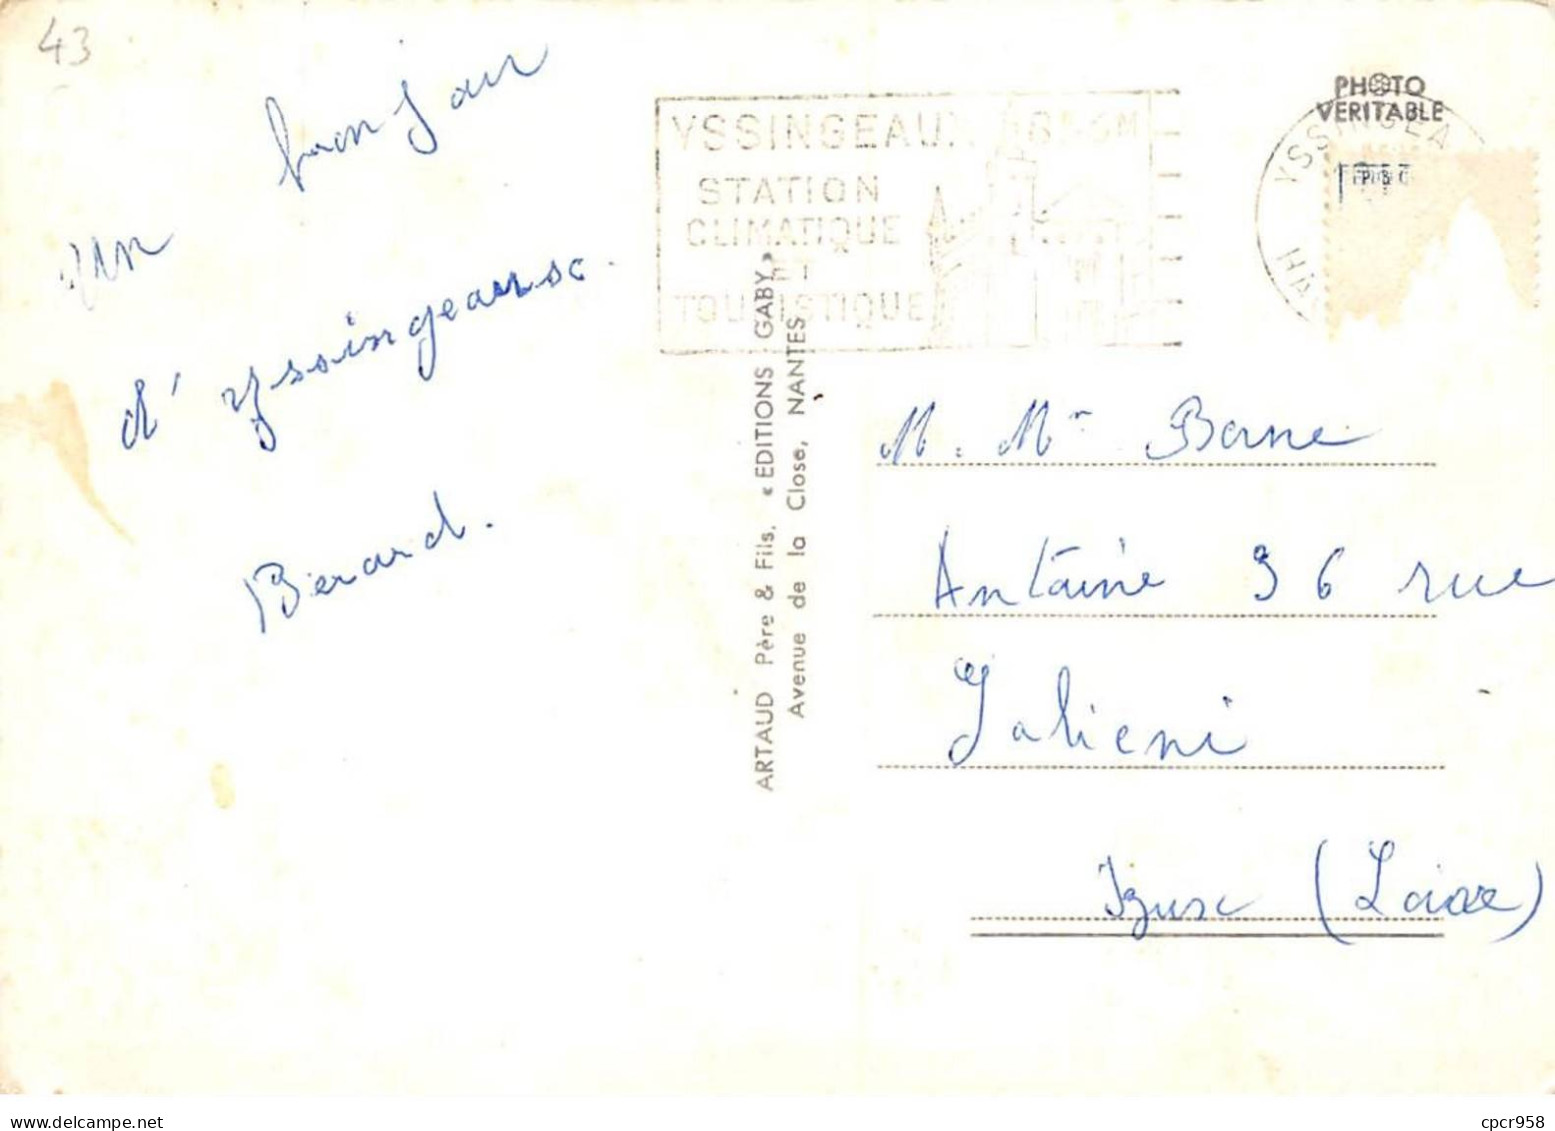 43
un bonjour
d'yssingeaux.
Berard.
YSSINGEAUX
STATION
CLIMATIQUE
ET
TOURISTIQUE
PHOTO
VERITABLE
YSSINGEA
ARTAUD Père & Fils. « EDITIONS GABY »
Avenue de la Close, NANTES
M. Mr Berne
Antoine 36 rue
Galieni
Izieux (Loire)
cpcr958